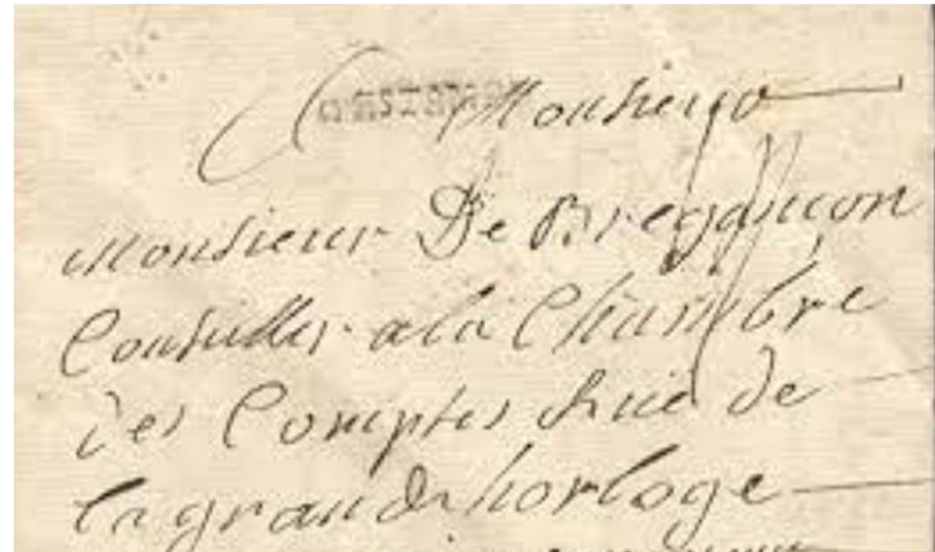 A Monsieur
Monsieur De Bregançon
Conseiller a la Chambre
des Comptes Rue de
la grande horloge